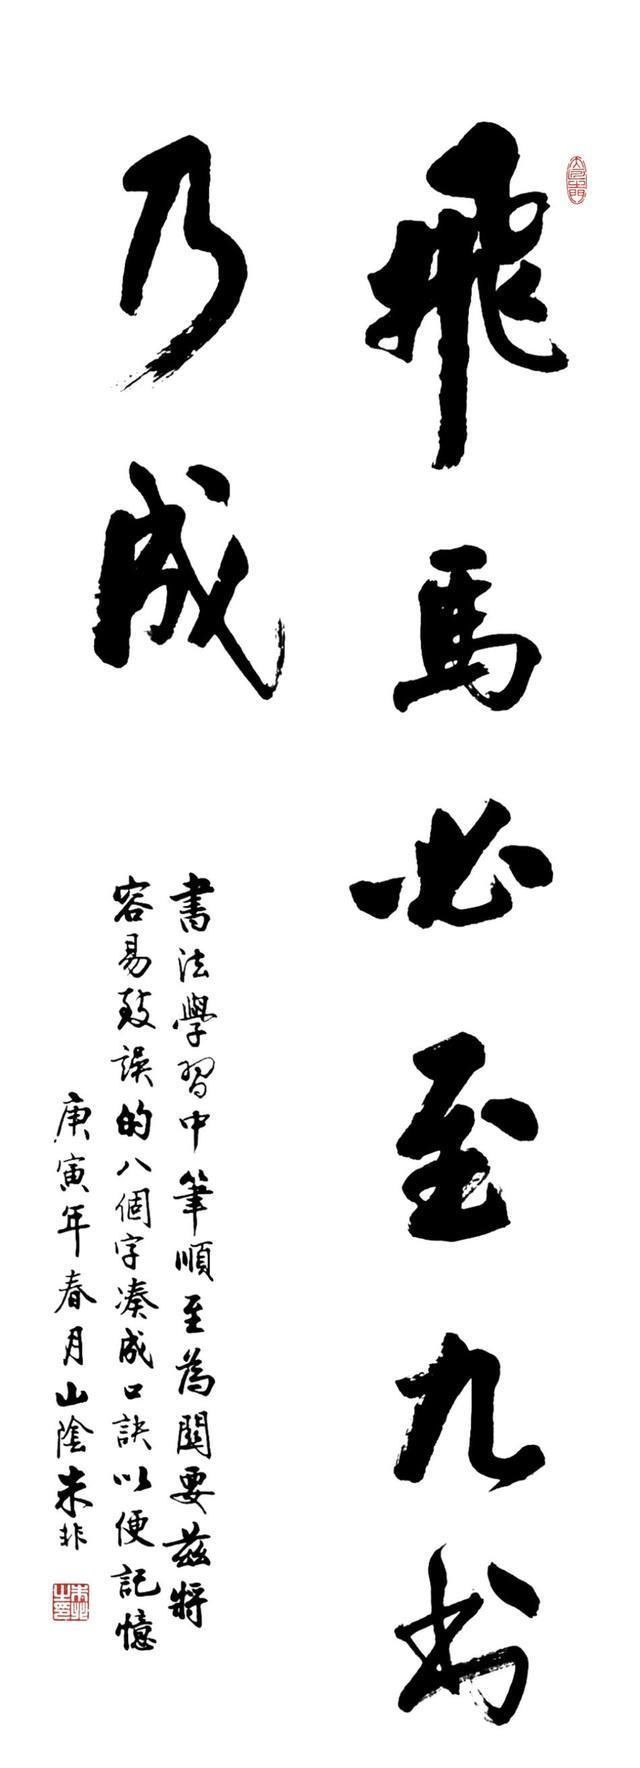 飛馬必至九
乃成
書法學習中筆順至為關要茲將
容易致誤的八個字湊成口訣以便記憶
庚寅年春月山陰朱非
朱非之印